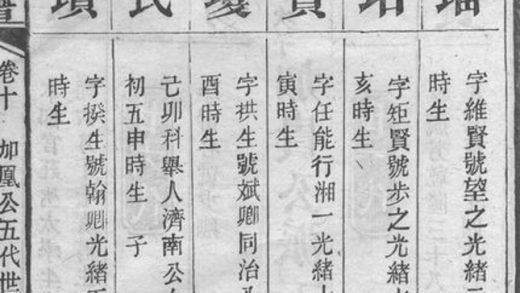 字維賢號望之光緒
時生
字矩賢號步之光緒
亥時生
字任能行湘一光緒
寅時生
字拱生號斌卿同治
酉時生
民
己卯科舉人濟南公
初五申時生 子
字揆生號翰卿光緒
時生
卷十 加凰公五代世